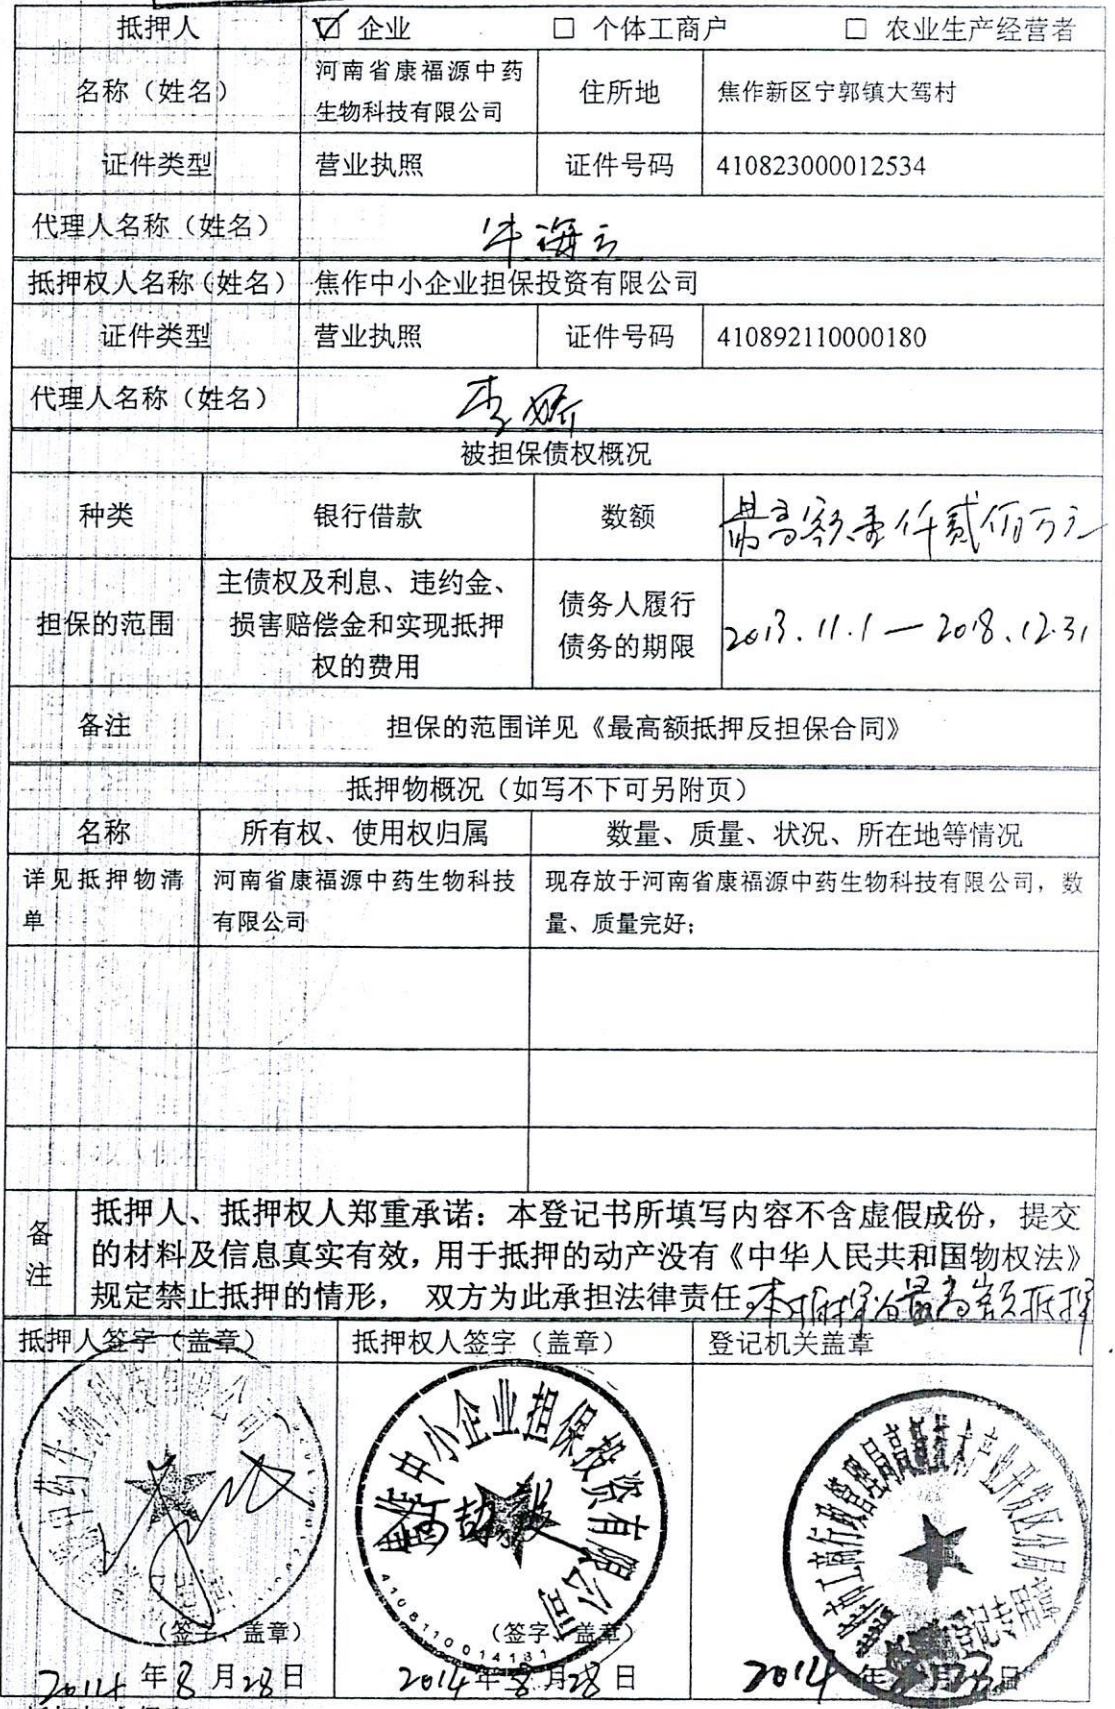 抵押人 ☑ 企业 □ 个体工商户 □ 农业生产经营者
名称（姓名） 河南省康福源中药生物科技有限公司 住所地 焦作新区宁郭镇大驾村
证件类型 营业执照 证件号码 410823000012534
代理人名称（姓名） 牛海云
抵押权人名称（姓名） 焦作中小企业担保投资有限公司
证件类型 营业执照 证件号码 410892110000180
代理人名称（姓名） 李娇
被担保债权概况
种类 银行借款 数额 最高额壹仟贰佰万元
担保的范围 主债权及利息、违约金、损害赔偿金和实现抵押权的费用 债务人履行债务的期限 2013.11.1—2018.12.31
备注 担保的范围详见《最高额抵押反担保合同》
抵押物概况（如写不下可另附页）
名称 所有权、使用权归属 数量、质量、状况、所在地等情况
详见抵押物清单 河南省康福源中药生物科技有限公司 现存放于河南省康福源中药生物科技有限公司，数量、质量完好；
备注 抵押人、抵押权人郑重承诺：本登记书所填写内容不含虚假成份，提交
的材料及信息真实有效，用于抵押的动产没有《中华人民共和国物权法》
规定禁止抵押的情形， 双方为此承担法律责任 本抵押为最高额抵押
抵押人签字（盖章） 抵押权人签字（盖章） 登记机关盖章
焦作中小企业担保投资有限公司
4108110014181
（签字、盖章） （签字、盖章）
2014年8月28日 2014年8月28日 2014年8月28日